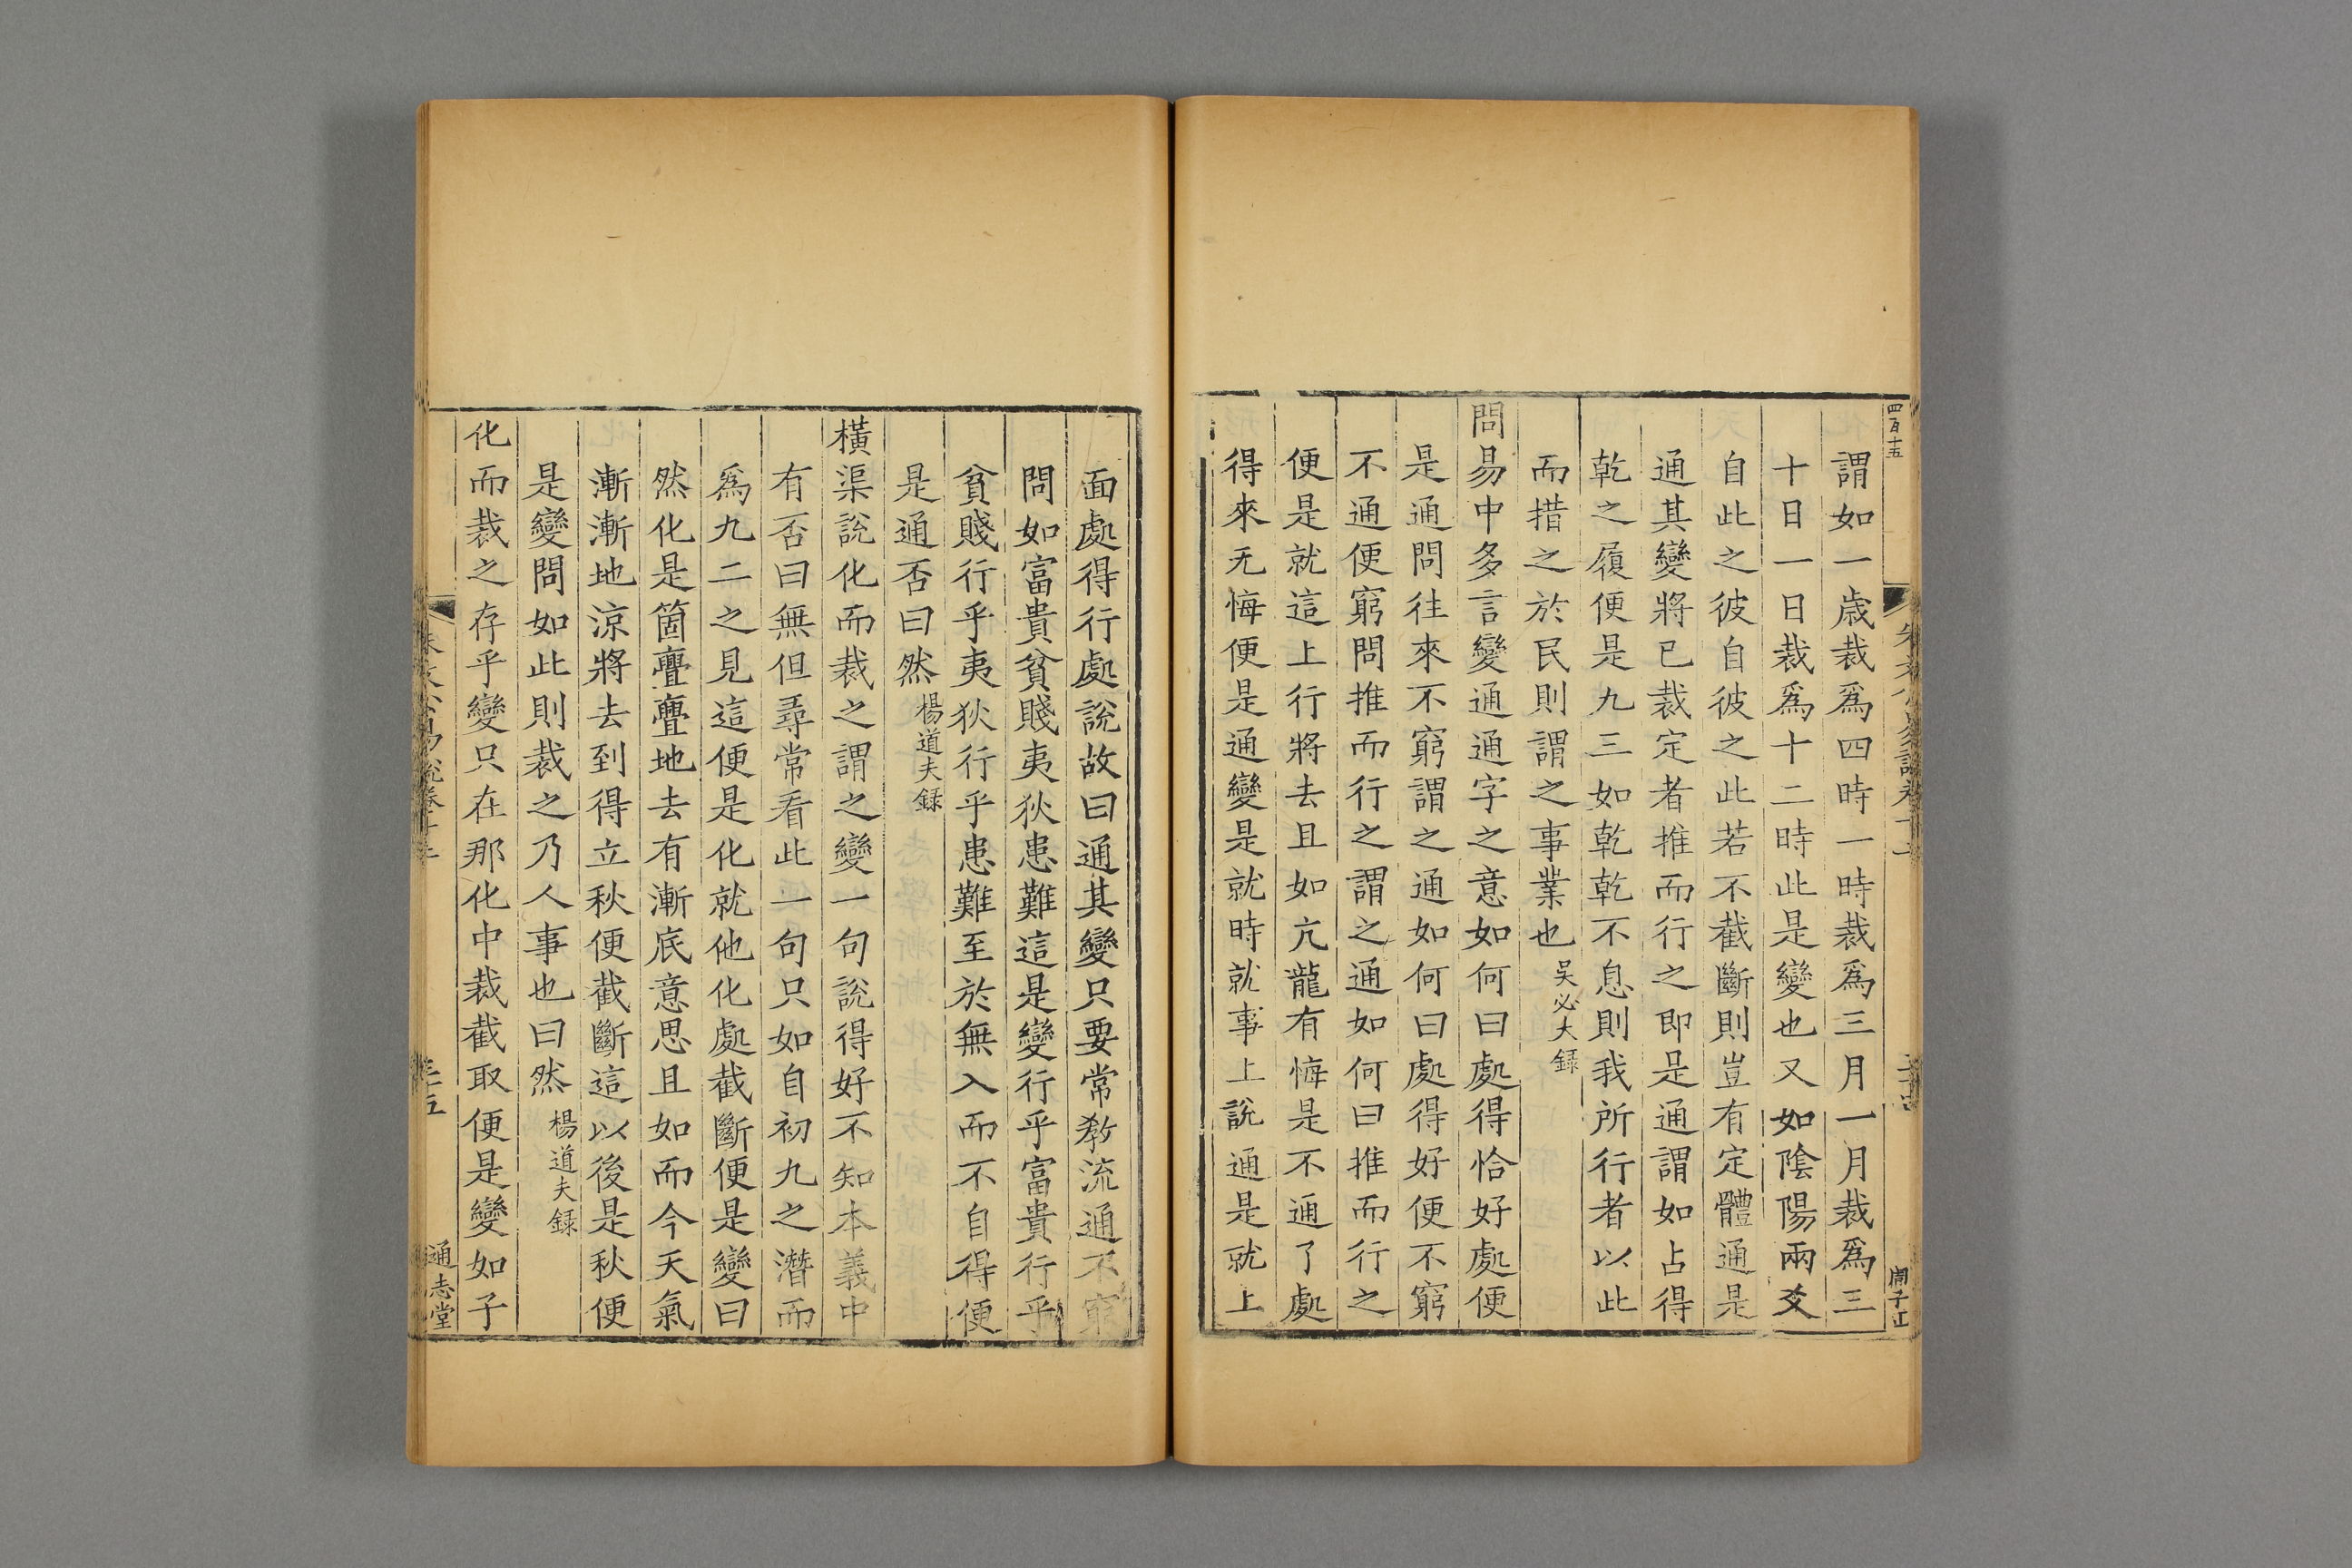 四百十五
謂如一歳裁爲四時一時裁爲三月一月裁爲三
十日一日裁爲十二時此是變也又如陰陽兩爻
自此之彼自彼之此若不截斷則豈有定體通是
通其變將已裁定者推而行之即是通謂如占得
乾之履便是九三如乾乾不息則我所行者以此
而措之於民則謂之事業也吴必大録
問易中多言變通通字之意如何曰處得恰好處便
是通問往來不窮謂之通如何曰處得好便不窮
不通便窮問推而行之謂之通如何曰推而行之
便是就這上行將去且如亢龍有悔是不通了處
得來无悔便是通變是就時就事上說通是就上
面處得行處說故曰通其變只要常教流通不窮
問如富貴貧賤夷狄患難這是變行乎富貴行乎
貧賤行乎夷狄行乎患難至於無入而不自得便
是通否曰然楊道夫録
橫渠說化而裁之謂之變一句說得好不知本義中
有否曰無但尋常看此一句只如自初九之潛而
爲九二之見這便是化就他化處截斷便是變曰
然化是箇亹亹地去有漸底意思且如而今天氣
漸漸地涼將去到得立秋便截斷這以後是秋便
是變問如此則裁之乃人事也曰然楊道夫録
化而裁之存乎變只在那化中裁截取便是變如子
通志堂